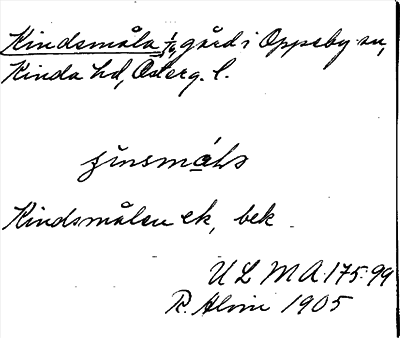 Kindsmåla 1/4 gård i Oppeby sn,
Kinda hd, Österg. l.
Kindsmålen ek, bek
ULMA 175:99
R. Alvin 1905